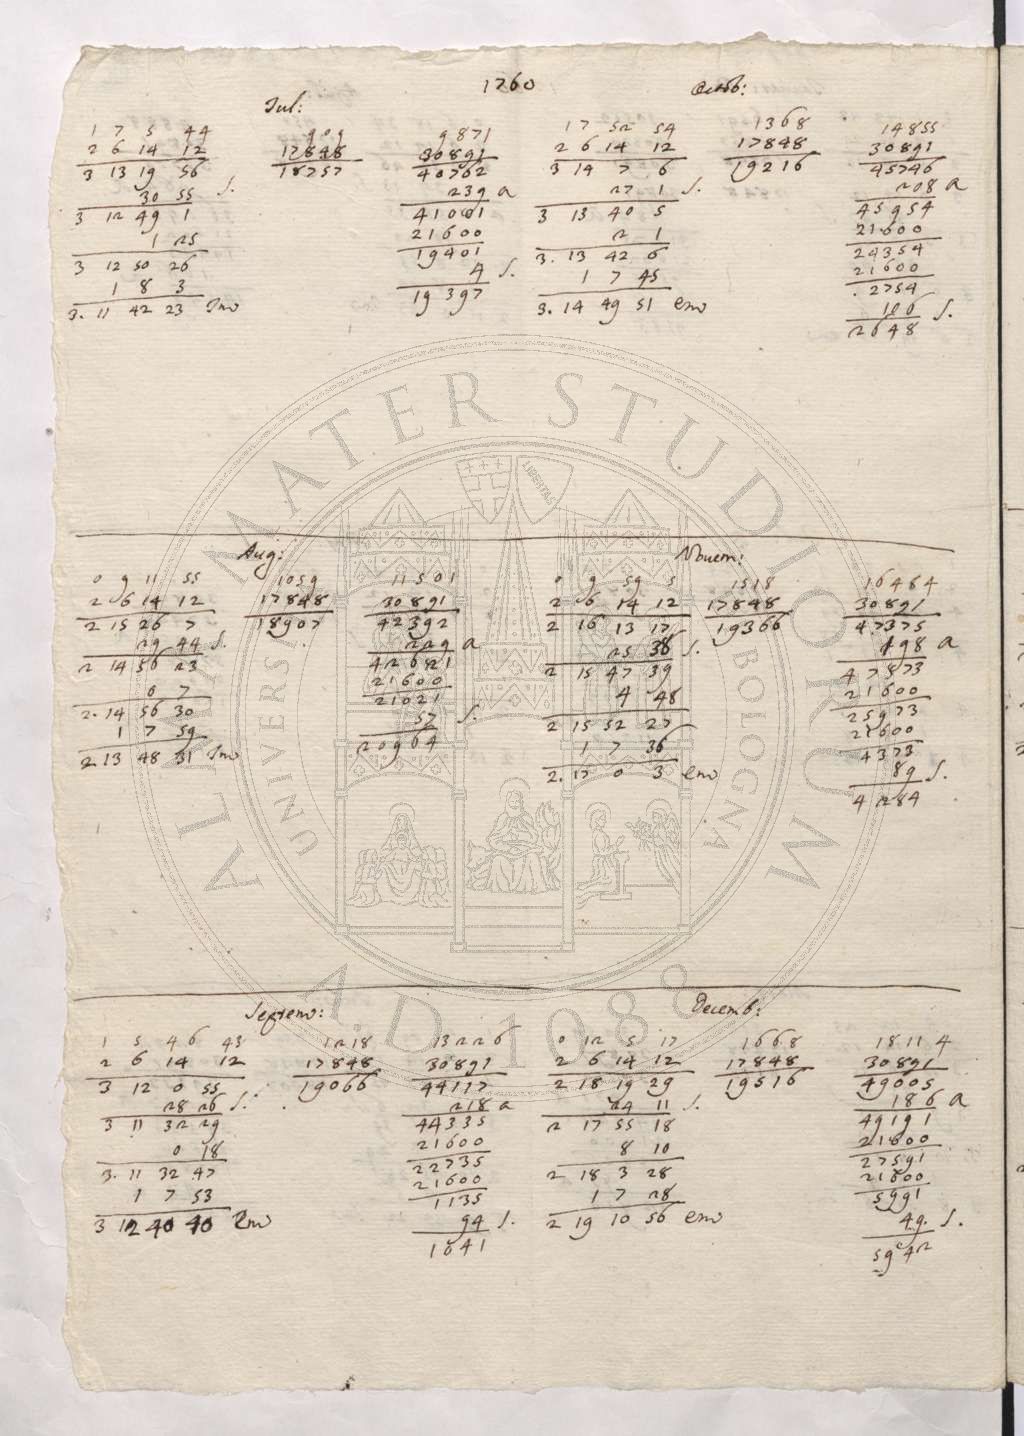 1760
Jul:
1 7 5 44
2 6 14 12
3 13 19 56
30 55 S.
3 12 49 1
1 25
3 12 50 26
1 8 3
3. 11 42 23 Imo
909
17848
18757
9871
30891
40762
239 a
41001
21600
19401
4 S.
19397
Octob:
17 52 54
2 6 14 12
3 14 7 6
27 1 S.
3 13 40 5
2 1
3. 13 42 6
1 7 45
3. 14 49 51 emo
1368
17848
19216
14855
30891
45746
208 a
45954
21600
24354
21600
2754
106 S.
2648
Aug:
0 9 11 55
2 6 14 12
2 15 26 7
29 44 S.
2 14 56 23
0 7
2. 14 56 30
1 7 59
2 13 48 31 Imo
1059
17848
18907
11501
30891
42392
229 a
42621
21600
21021
57 S.
20964
Nouem:
0 9 59 5
2 6 14 12
2 16 13 17
25 38 S.
2 15 47 39
4 48
2 15 52 27
1 7 36
2. 17 0 3 emo
1518
17848
19366
16484
30891
47375
198 a
47573
21600
25973
21600
4373
89 S.
4284
Septemb:
1 5 46 43
2 6 14 12
3 12 0 55
28 26 S.
3 11 32 29
0 18
3. 11 32 47
1 7 53
3 12 40 40 Imo
1218
17848
19066
13226
30891
44117
218 a
44335
21600
22735
21600
1135
94 S.
1041
Decemb:
0 12 5 17
2 6 14 12
2 18 19 29
24 11 S.
2 17 55 18
8 10
2 18 3 28
1 7 28
2 19 10 56 emo
1668
17848
19516
18114
30891
49005
186 a
49191
21600
27591
21600
5991
49. S.
5942
ALMA MATER STUDIORUM
UNIVERSITÀ DI BOLOGNA
A.D. 1088
LIBERTAS